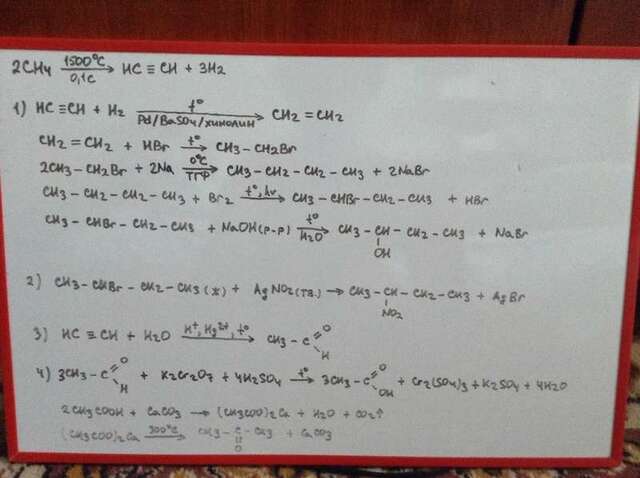 2CH4 1500°C 0,1с → HC≡CH + 3H2
1) HC≡CH + H2 t° Pd/BaSO4/хинолин → CH2=CH2
CH2=CH2 + HBr t° → CH3-CH2Br
2CH3-CH2Br + 2Na 0°C ТГФ → CH3-CH2-CH2-CH3 + 2NaBr
CH3-CH2-CH2-CH3 + Br2 t°, hν → CH3-CHBr-CH2-CH3 + HBr
CH3-CHBr-CH2-CH3 + NaOH(р-р) t° H2O → CH3-CH-CH2-CH3 + NaBr
OH
2) CH3-CHBr-CH2-CH3(ж) + AgNO2(тв.) → CH3-CH-CH2-CH3 + AgBr
NO2
3) HC≡CH + H2O H+, Hg2+, t° → CH3-C=O
H
4) 3CH3-C=O H + K2Cr2O7 + 4H2SO4 t° → 3CH3-C=O OH + Cr2(SO4)3 + K2SO4 + 4H2O
2CH3COOH + CaCO3 → (CH3COO)2Ca + H2O + CO2↑
(CH3COO)2Ca 300°C → CH3-C-CH3 + CaCO3
O